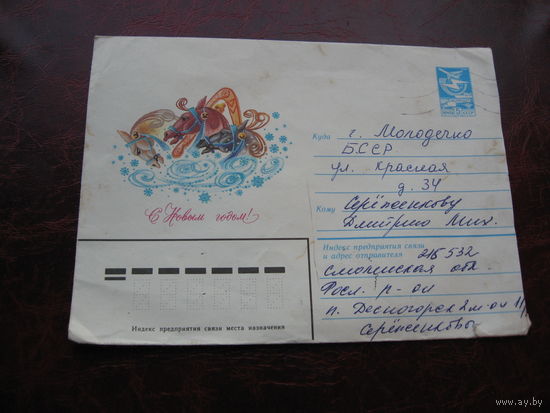 С Новым годом!
Куда г. Молодечно
БССР
ул. Красная
д. 34
Кому Серёженкову
Дмитрию Мих.
Индекс предприятия связи
и адрес отправителя 216532
Смоленская обл.
Росл. р-он
п. Десногорск 2 м-он
Серёженковы
Индекс предприятия связи места назначения
www.ay.by